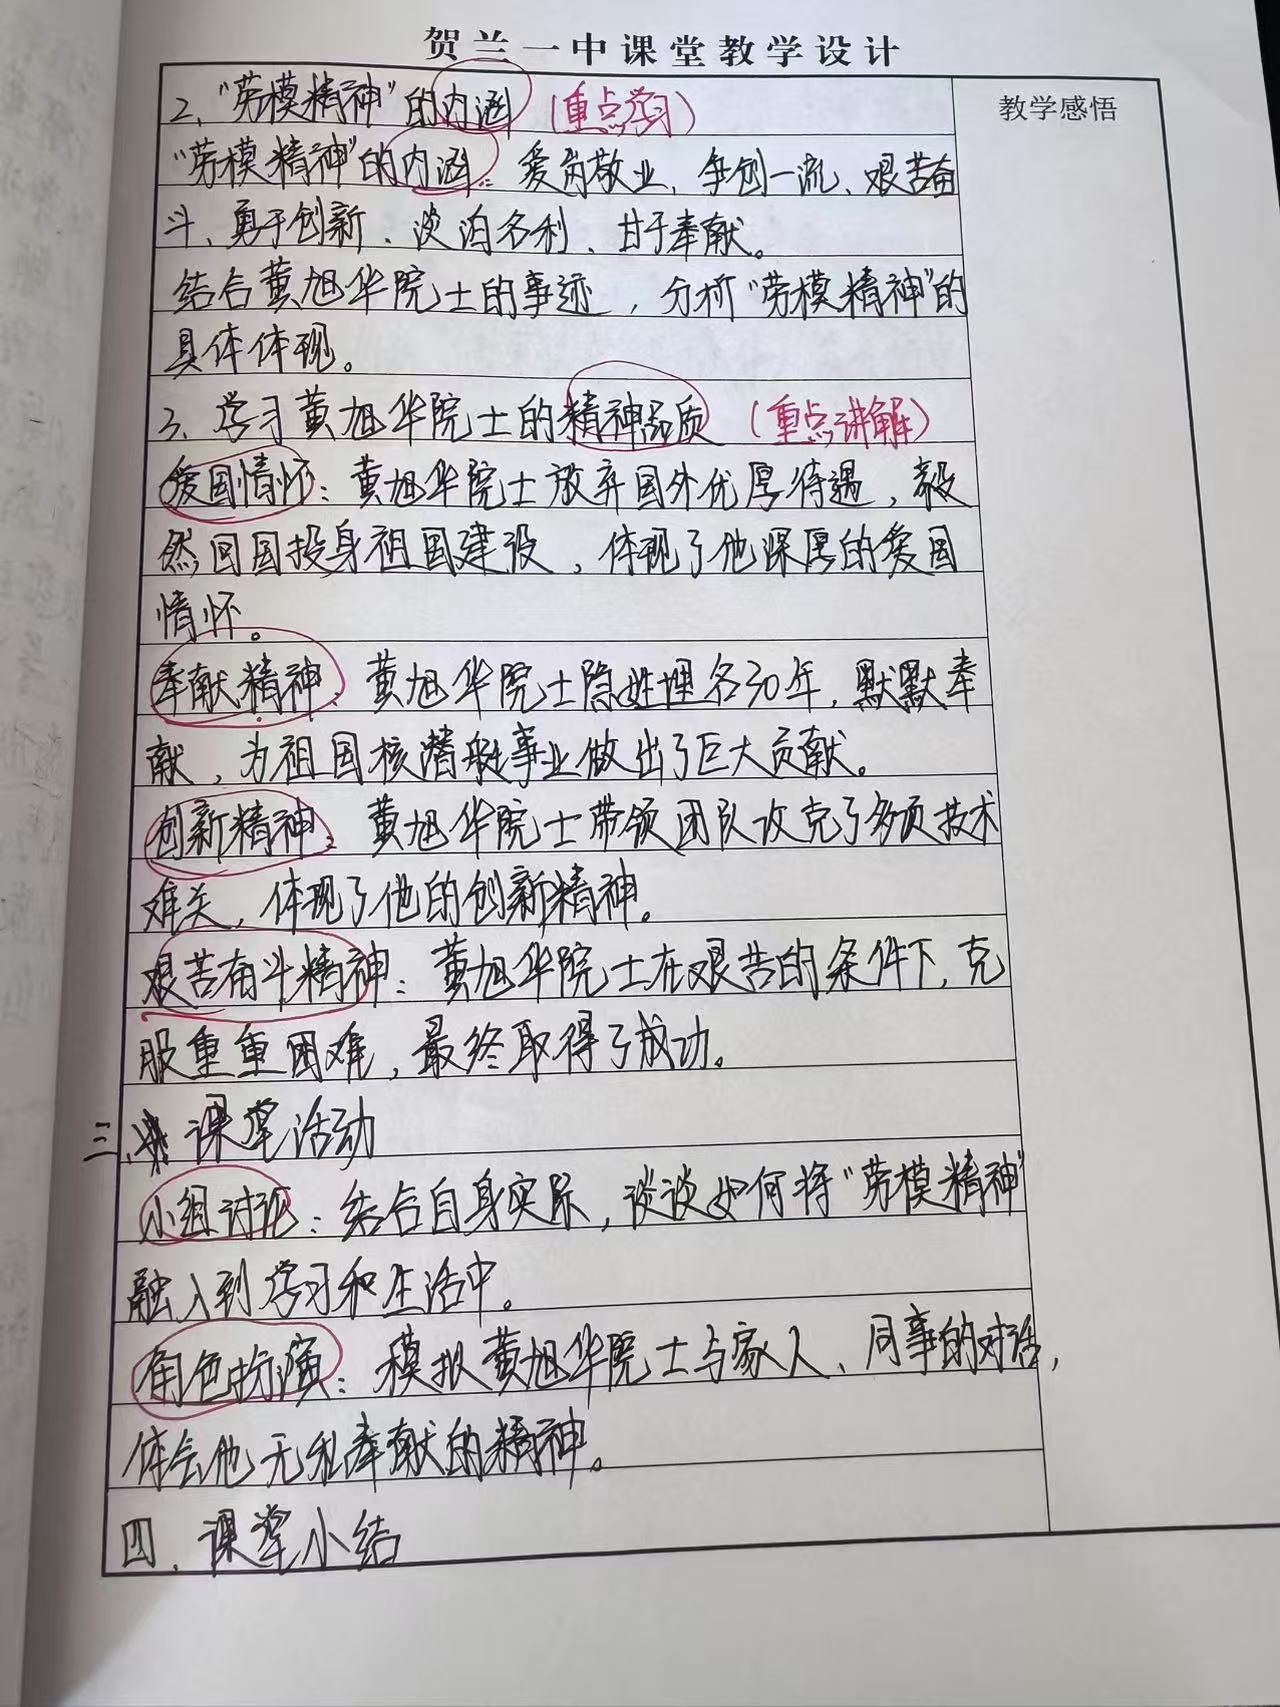 贺兰一中课堂教学设计
教学感悟
2、“劳模精神”的内涵（重点学习）
“劳模精神”的内涵：爱岗敬业、争创一流、艰苦奋
斗、勇于创新、淡泊名利、甘于奉献。
结合黄旭华院士的事迹，分析“劳模精神”的
具体体现。
3、学习黄旭华院士的精神品质（重点讲解）
爱国情怀：黄旭华院士放弃国外优厚待遇，毅
然回国投身祖国建设，体现了他深厚的爱国
情怀。
奉献精神：黄旭华院士隐姓埋名30年，默默奉
献，为祖国核潜艇事业做出了巨大贡献。
创新精神：黄旭华院士带领团队攻克了多项技术
难关，体现了他的创新精神。
艰苦奋斗精神：黄旭华院士在艰苦的条件下，克
服重重困难，最终取得了成功。
三、课堂活动
小组讨论：结合自身实际，谈谈如何将“劳模精神”
融入到学习和生活中。
角色扮演：模拟黄旭华院士与家人、同事的对话，
体会他无私奉献的精神。
四、课堂小结